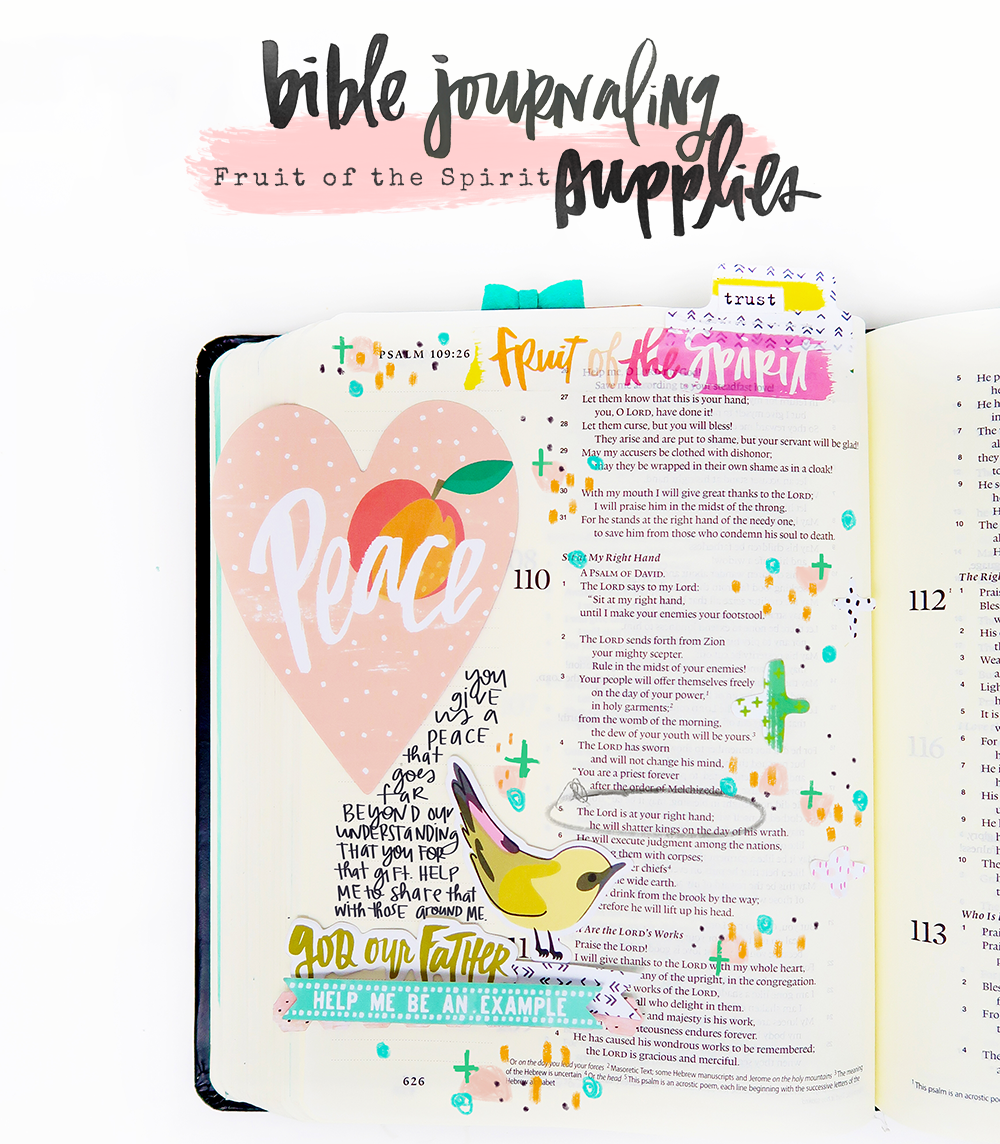 bible journaling
Fruit of the Spirit supplies
trust
PSALM 109:26
fruit of the SPIRIT
26 Help me, O LORD my God!
Save me according to your steadfast love!
27 Let them know that this is your hand;
you, O LORD, have done it!
28 Let them curse, but you will bless!
They arise and are put to shame, but your servant will be glad!
29 May my accusers be clothed with dishonor;
may they be wrapped in their own shame as in a cloak!
30 With my mouth I will give great thanks to the LORD;
I will praise him in the midst of the throng.
31 For he stands at the right hand of the needy one,
to save him from those who condemn his soul to death.
Peace
Sit at My Right Hand
110
A PSALM OF DAVID.
1 The LORD says to my Lord:
"Sit at my right hand,
until I make your enemies your footstool."
2 The LORD sends forth from Zion
your mighty scepter.
Rule in the midst of your enemies!
3 Your people will offer themselves freely
on the day of your power,1
in holy garments;2
from the womb of the morning,
the dew of your youth will be yours.3
4 The LORD has sworn
and will not change his mind,
"You are a priest forever
after the order of Melchizedek
5 The Lord is at your right hand;
he will shatter kings on the day of his wrath.
6 He will execute judgment among the nations,
them with corpses;
chiefs4
wide earth.
drink from the brook by the way;
therefore he will lift up his head.
you
give
us a
PEACE
that
goes
far
BEYOND our
UNDERSTANDING
THAT YOU FOR
that GIFT. HELP
ME to share that
WITH THOSE around ME.
GOD our FATHER
HELP ME BE AN EXAMPLE
Are the LORD'S Works
Praise the LORD!
I will give thanks to the LORD with my whole heart,
of the upright, in the congregation.
works of the LORD,
all who delight in them.
and majesty is his work,
righteousness endures forever.
4 He has caused his wondrous works to be remembered;
the LORD is gracious and merciful.
1 Or on the day you lead your forces 2 Masoretic Text; some Hebrew manuscripts and Jerome on the holy mountains 3 The meaning
of the Hebrew is uncertain 4 Or the head 5 This psalm is an acrostic poem, each line beginning with the successive letters of the
Hebrew alphabet
626
5 He
6 He
7 The
8 they
9 He
10 The
The Rig
112
1
2 His
3 Wea
4 Ligh
5 It is
6 For
7 He
8 His
9 He
10 The
Who Is
113
1 Prai
Prai
2 Bles
3 Fro
4 The
1 This psalm is an acrostic